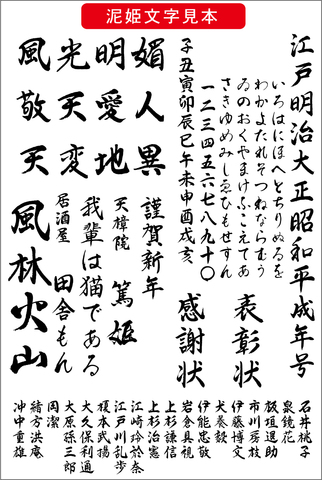 泥姫文字見本
江戸明治大正昭和平成年号
いろはにほへとちりぬるを
わかよたれそつねならむう
ゐのおくやまけふこえてあ
さきゆめみしゑひもせすん
一二三四五六七八九十〇
子丑寅卯辰巳午未申酉戌亥
表彰状
感謝状
媚人異
明愛地
光天変
風敬天
謹賀新年
天樟院
篤姫
我輩は猫である
居酒屋
田舎もん
風林火山
石井桃子
泉鏡花
板垣退助
市川房枝
伊藤博文
犬養毅
伊能忠敬
岩倉具視
上杉謙信
上杉治憲
江崎玲於奈
江戸川乱歩
榎本武揚
大久保利通
大原孫三郎
岡潔
緒方洪庵
沖中重雄